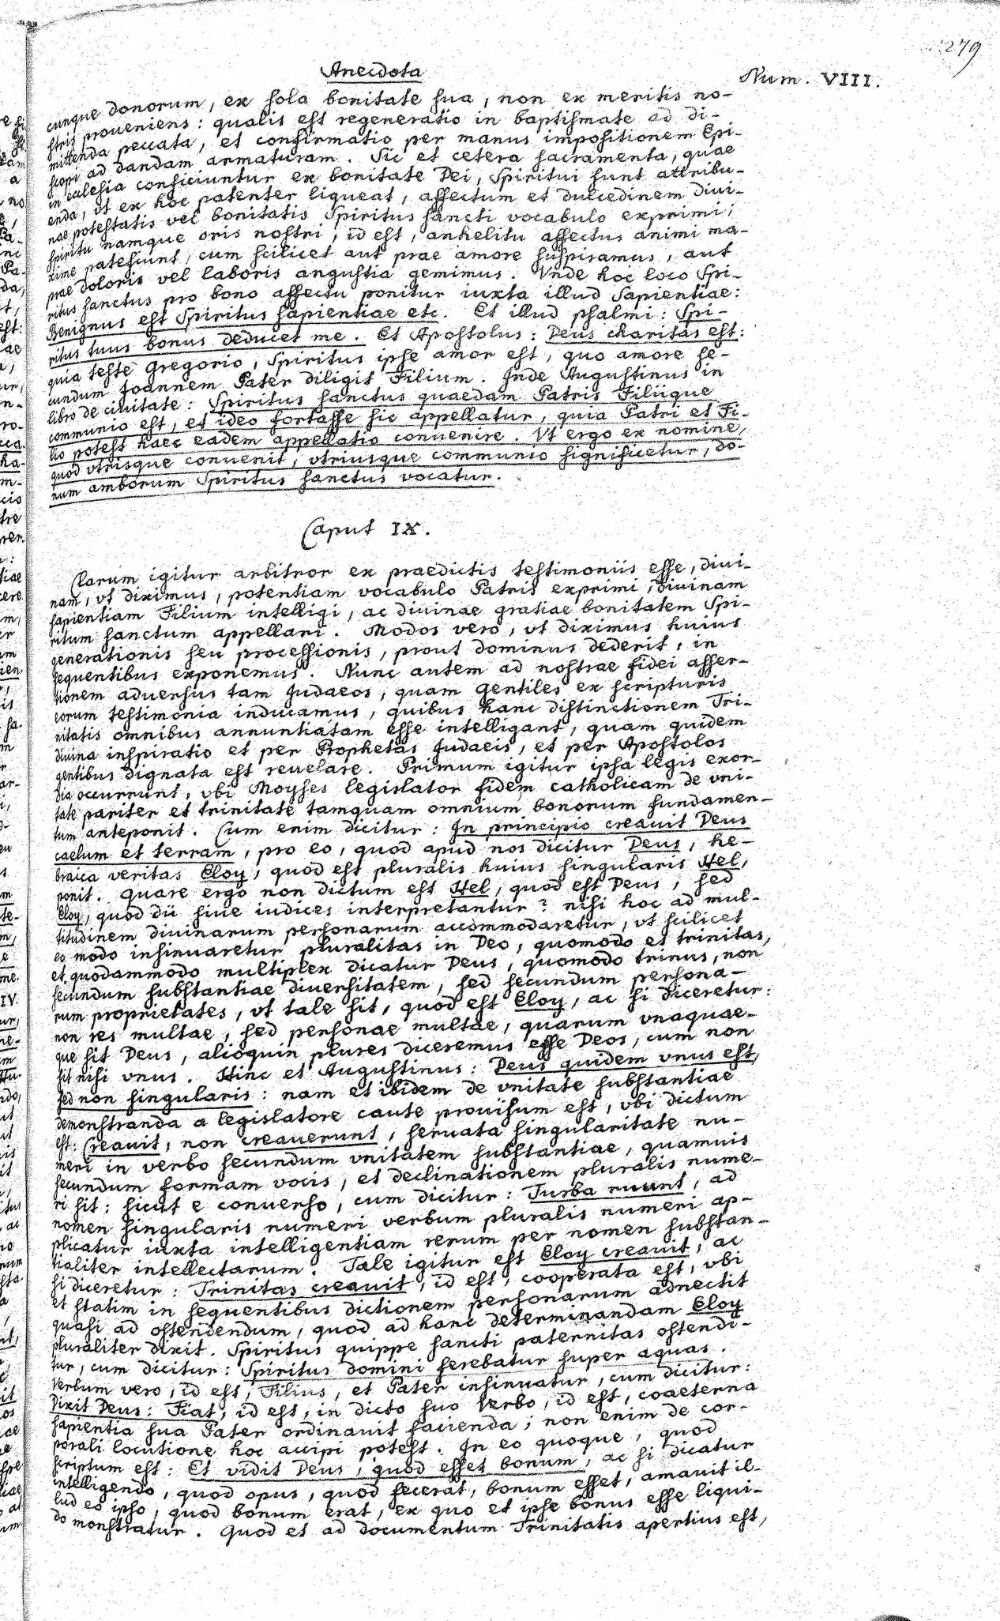 279
Anecdota
Num. VIII.
cunque donorum, ex sola bonitate sua, non ex meritis no-
stris proueniens: qualis est regeneratio in baptismate ad di-
mittenda peccata, et confirmatio per manus impositionem Epi-
scopi ad dandam armaturam. Sic et cetera sacramenta, quae
in ecclesia conficiuntur ex bonitate Dei, Spiritui sunt attribu-
enda, vt ex hoc patenter liqueat, affectum et dulcedinem diui-
nae potestatis vel bonitatis Spiritus sancti vocabulo exprimi;
spiritu namque oris nostri, id est, anhelitu affectus animi ma-
xime patefiunt, cum scilicet aut prae amore suspiramus, aut
prae doloris vel laboris angustia gemimus. Vnde hoc loco Spi-
ritus sanctus pro bono affectu ponitur iuxta illud Sapientiae:
Benignus est Spiritus sapientiae etc. Et illud psalmi: Spi-
ritus tuus bonus deducet me. Et Apostolus: Deus charitas est:
quia teste Gregorio, Spiritus ipse amor est, quo amore se-
cundum Joannem Pater diligit Filium. Inde Augustinus in
libro de ciuitate: Spiritus sanctus quaedam Patris Filiique
communio est, et ideo fortasse sic appellatur, quia Patri et Fi-
lio potest haec eadem appellatio conuenire. Vt ergo ex nomine,
quod vtrisque conuenit, vtriusque communio significetur, do-
num amborum Spiritus sanctus vocatur.
Caput IX.
Clarum igitur arbitror ex praedictis testimoniis esse, diui-
nam, vt diximus, potentiam vocabulo Patris exprimi, diuinam
sapientiam Filium intelligi, ac diuinae gratiae bonitatem Spi-
ritum sanctum appellari. Modos vero, vt diximus huius
generationis seu processionis, prout dominus dederit, in
sequentibus exponemus. Nunc autem ad nostrae fidei asser-
tionem aduersus tam Judaeos, quam gentiles ex scripturis
eorum testimonia inducamus, quibus hanc distinctionem Tri-
nitatis omnibus annuntiatam esse intelligant, quam quidem
diuina inspiratio et per Prophetas Judaeis, et per Apostolos
gentibus dignata est reuelare. Primum igitur ipsa legis exor-
dia occurrunt, vbi Moyses legislator fidem catholicam de vni-
tate pariter et trinitate tamquam omnium bonorum fundamen-
tum anteponit. Cum enim dicitur: In principio creauit Deus
caelum et terram, pro eo, quod apud nos dicitur Deus, he-
braica veritas Eloy, quod est pluralis huius singularis Hel,
ponit. Quare ergo non dictum est Hel, quod est Deus, sed
Eloy, quod dii siue iudices interpretantur? nisi hoc ad mul-
titudinem diuinarum personarum accommodaretur, vt scilicet
eo modo insinuaretur pluralitas in Deo, quomodo et trinitas,
et quodammodo multiplex dicatur Deus, quomodo trinus, non
secundum substantiae diuersitatem, sed secundum persona-
rum proprietates, vt tale sit, quod est Eloy, ac si diceretur:
non res multae, sed personae multae, quarum vnaquae-
que sit Deus, alioquin plures diceremus esse Deos, cum non
sit nisi vnus. Hinc et Augustinus: Deus quidem vnus est,
sed non singularis: nam et ibidem de vnitate substantiae
demonstranda a legislatore caute prouisum est, vbi dictum
est: Creauit, non creauerunt, seruata singularitate nu-
meri in verbo secundum vnitatem substantiae, quamuis
secundum formam vocis, et declinationem pluralis nume-
ri sit: sicut e conuerso, cum dicitur: Turba ruunt, ad
nomen singularis numeri verbum pluralis numeri ap-
plicatur iuxta intelligentiam rerum per nomen substan-
tialiter intellectarum. Tale igitur est Eloy creauit, ac
si diceretur: Trinitas creauit, id est, cooperata est, vbi
et statim in sequentibus dictionem personarum adnectit
quasi ad ostendendum, quod ad hanc determinandam Eloy
pluraliter dixit. Spiritus quippe sancti paternitas ostendi-
tur, cum dicitur: Spiritus domini ferebatur super aquas.
Verbum vero, id est, Filius, et Pater insinuatur, cum dicitur:
Dixit Deus: Fiat, id est, in dicto suo Verbo, id est, coaeterna
sapientia sua Pater ordinauit facienda; non enim de cor-
porali locutione hoc accipi potest. In eo quoque, quod
scriptum est: Et vidit Deus, quod esset bonum, ac si dicatur
intelligendo, quod opus, quod fecerat, bonum esset, amauit il-
lud eo ipso, quod bonum erat, ex quo et ipse bonus esse liqui-
do monstratur. Quod et ad documentum Trinitatis apertius est,